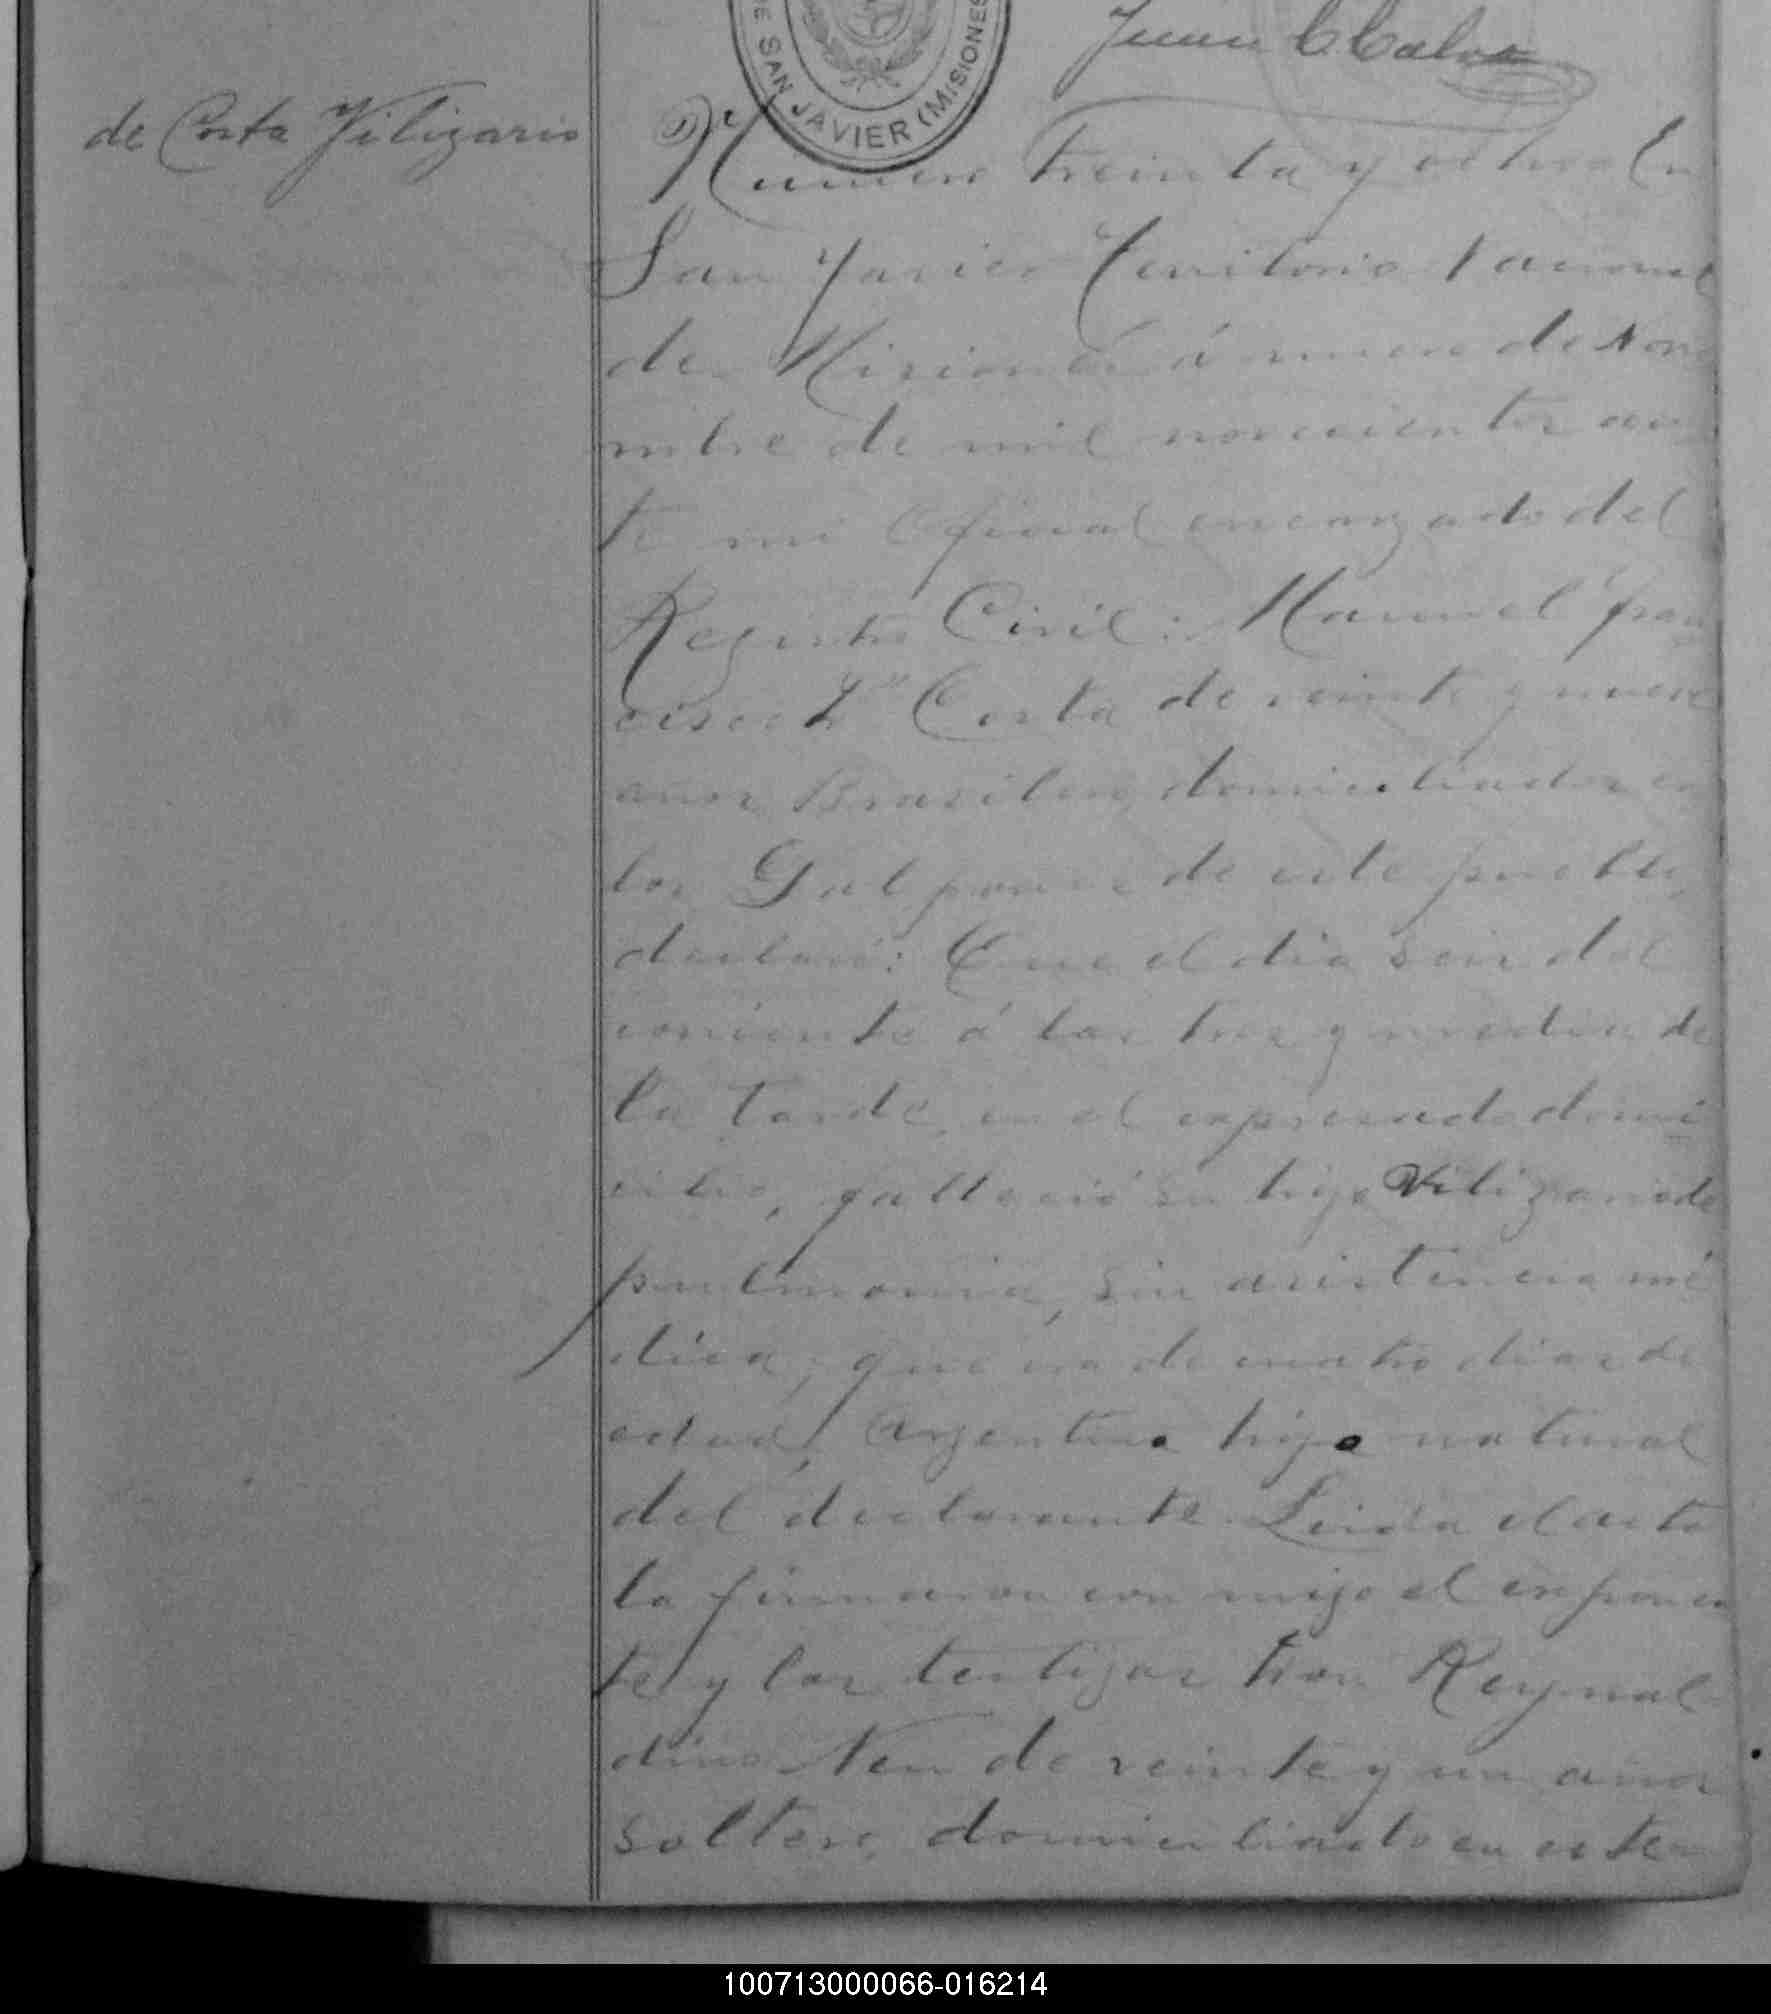 DE SAN JAVIER (MISIONES
Juan C Calvo
de Costa Filizario
Numero treinta y ocho En
San Javier Territorio Nacional
de Misiones á nueve de Nove
mbre de mil novecientos an
te mi Oficial encargado del
Registro Civil: Manuel Fran
cisco Costa de veinte y nueve
anos Brasilero, domiciliados en
los Galpones de este pueblo,
declaró: Que el dia seis del
corriente á las tres y media de
la tarde, en el expresado domi
cilio, falleció su hijo Vilizario de
pulmonia, sin asistencia mé
dica, que era de cuatro dias de
edad, Argentino hijo natural
del declarante. Leida el acta
la firmaron con migo el exponen
te y los testigos Don Reynal
dino Neu de veinte y un anos
soltero, domiciliado en este
100713000066-016214